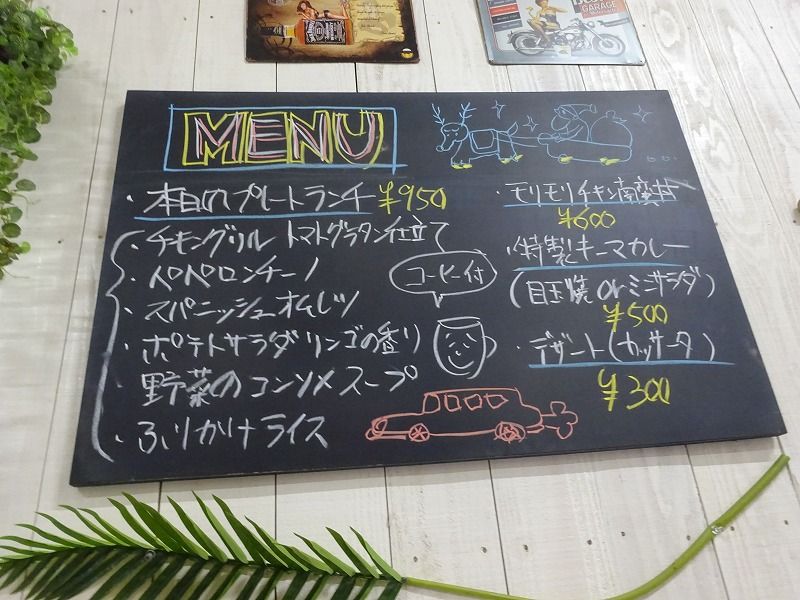 GARAGE
MENU
・本日のプレートランチ ¥950
・チキングリル トマトグラタン仕立て
・ペペロンチーノ
・スパニッシュオムレツ
・ポテトサラダ リンゴの香り
野菜のコンソメスープ
・ふりかけライス
コーヒー付
・モリモリチキン南蛮丼
¥600
・特製キーマカレー
(目玉焼 or ミニサラダ)
¥500
・デザート(カッサータ)
¥300